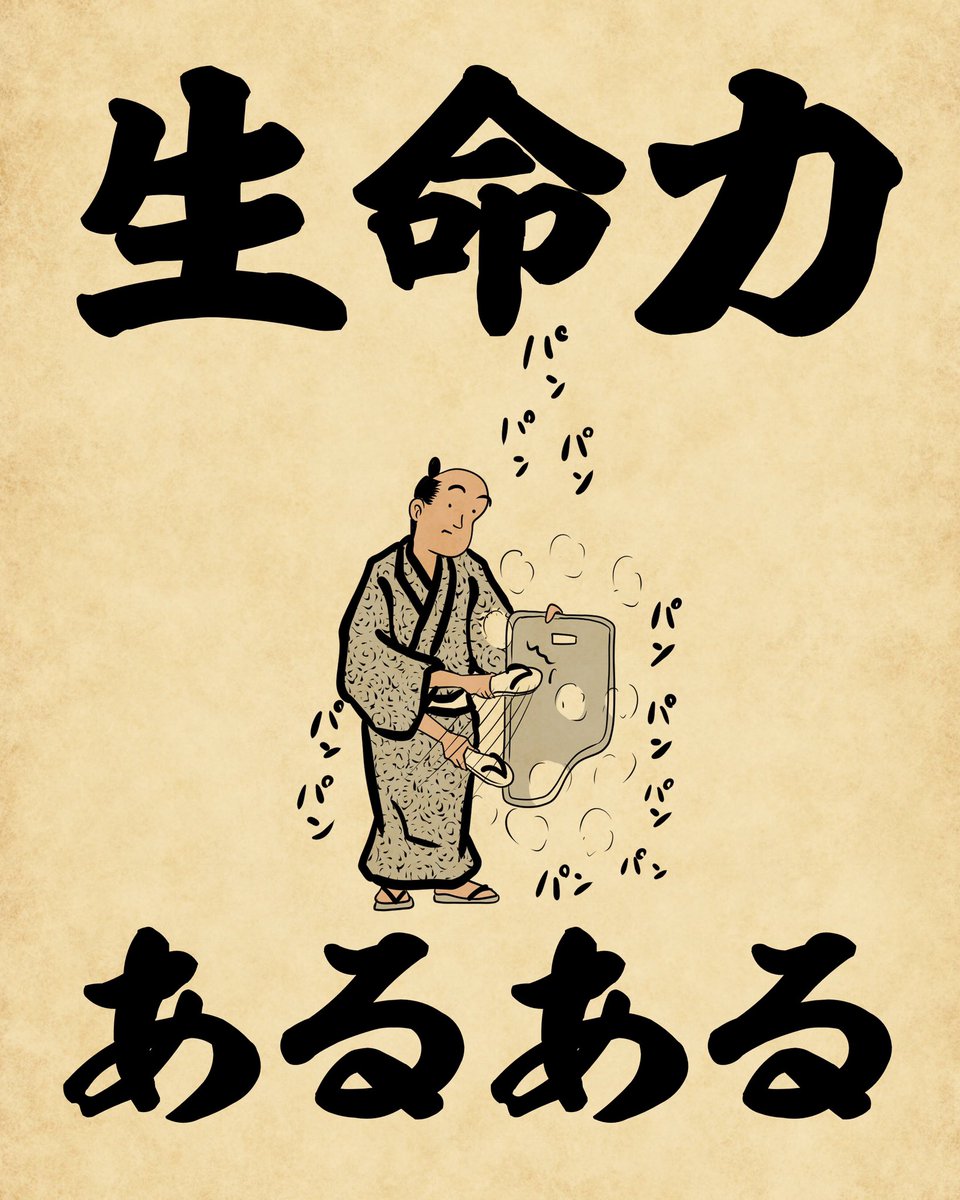 生命力
パン
パン
パン
パン
パン
パン
パン
パン
パン
パン
あるある